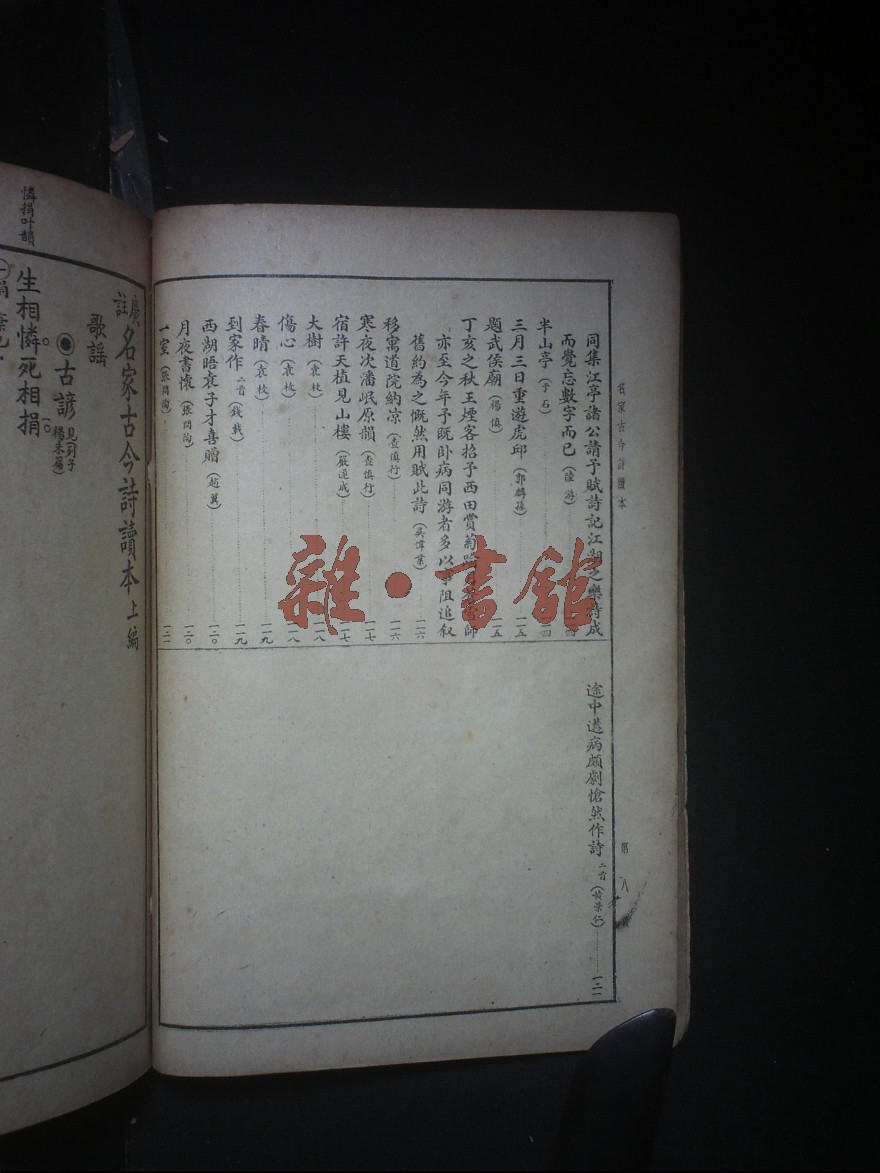 名家古今詩讀本
第八
同集江亭諸公請予賦詩記江湖之樂詩成
而覺忘數字而已(陸游)
半山亭(于石) 四
三月三日重遊虎邱(郭麟孫) 一一五
題武侯廟(楊慎) 一一五
丁亥之秋王煙客招予西田賞菊
師
亦至今年予既卧病同游者多以事阻追叙
舊約為之慨然用賦此詩(吳偉業) 一一六
移寓道院納凉(查慎行) 一一六
寒夜次潘岷原韻(查慎行) 一一七
宿許天植見山樓(嚴遂成) 一一七
大樹(袁枚) 一一八
傷心(袁枚) 一一八
春晴(袁枚) 一一九
到家作二首(錢載) 一一九
西湖晤袁子才喜贈(趙翼) 一二〇
月夜書懷(張問陶) 一二〇
一室(張問陶) 一二一
途中遘病頗劇愴然作詩二首(黃景仁) 一二一
廣註名家古今詩讀本上編
歌謠
古諺見列子楊朱篇
生相憐死相捐
憐捐叶韻
雜·書舘